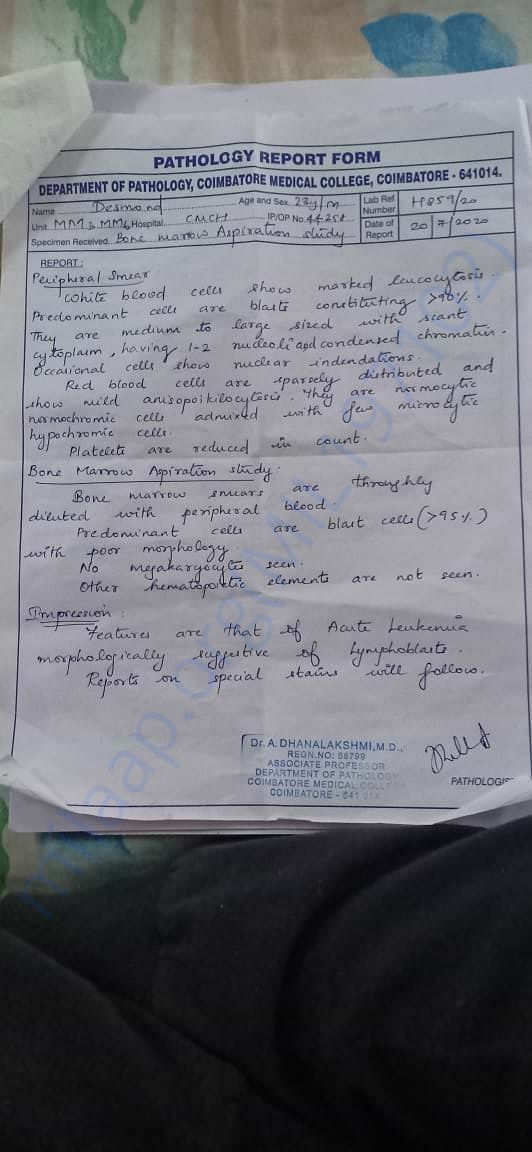 PATHOLOGY REPORT FORM
DEPARTMENT OF PATHOLOGY, COIMBATORE MEDICAL COLLEGE, COIMBATORE - 641014.
Name Desmond Age and Sex 23y/m Lab Ref Number H859/20
Unit MM3 MM6 Hospital CMCH IP/OP No. Date of Report 20/7/2020
Specimen Received Bone marrow Aspiration study
REPORT:
Peripheral Smear
White blood cells show marked leucocytosis.
Predominant cells are blasts constituting >90%.
They are medium to large sized with scant
cytoplasm, having 1-2 nucleoli and condensed chromatin.
Occasional cells show nuclear indendations.
Red blood cells are sparsely distributed and
show mild anisopoikilocytosis. They are normocytic
normochromic cells admixed with few microcytic
hypochromic cells.
Platelets are reduced in count.
Bone Marrow Aspiration study:
Bone marrow smears are throughly
diluted with peripheral blood.
Predominant cells are blast cells (>95%)
with poor morphology.
No megakaryocytes seen.
Other hematopoietic elements are not seen.
Impression:
Features are that of Acute Leukemia
morphologically suggestive of Lymphoblasts.
Reports on special stains will follow.
Dr. A. DHANALAKSHMI, M.D.,
REGN.NO: 58799
ASSOCIATE PROFESSOR
DEPARTMENT OF PATHOLOGY
COIMBATORE MEDICAL COLLEGE
COIMBATORE - 641 014
PATHOLOGIS